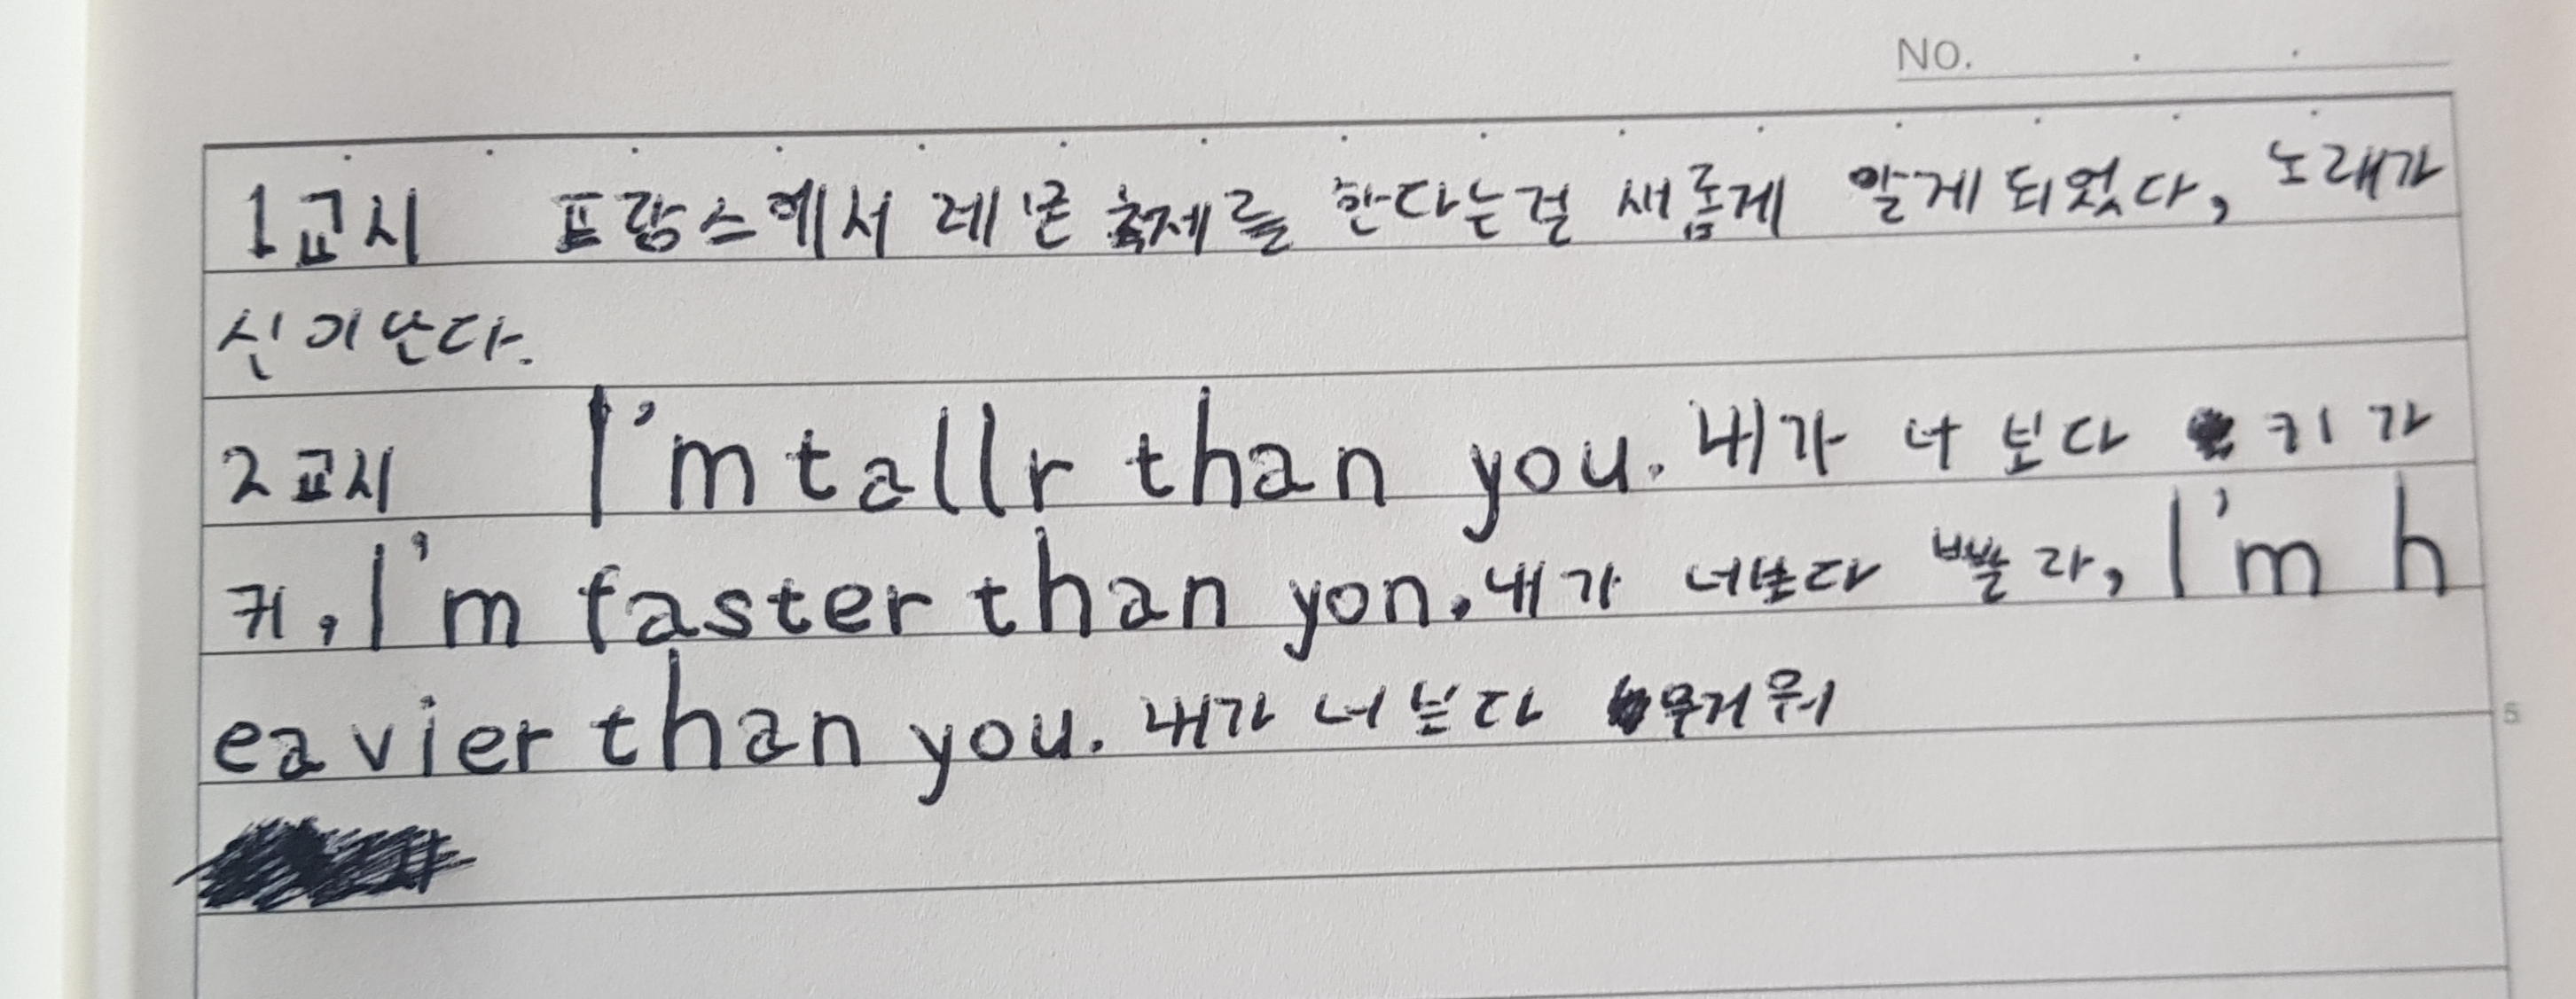 NO.
1교시 프랑스에서 레몬 축제를 한다는걸 새롭게 알게되었다, 노래가
신이난다.
2교시 I'm tallr than you. 내가 너보다 키가
커, I'm faster than yon. 내가 너보다 빨라, I'm h
eavier than you. 내가 너보다 무거워
5